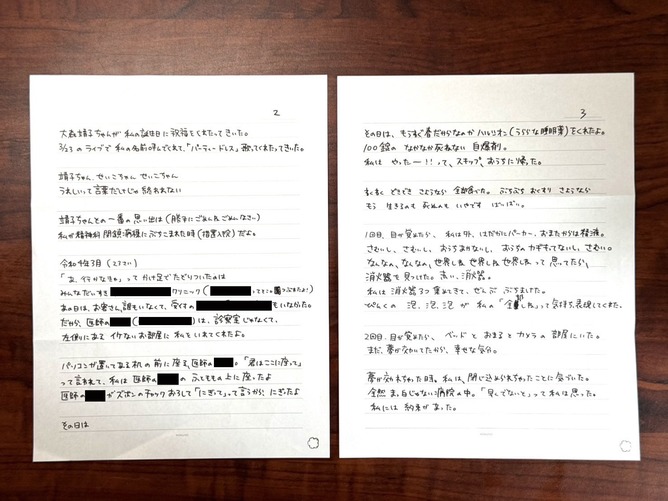 2
大森靖子ちゃんが 私の誕生日に祝福をくれたってきいた。
3/23のライブで 私の名前呼んでくれて、「パーティードレス」歌ってくれたってきいた。
靖子ちゃん、せいこちゃん せいこちゃん
うれしいって言葉だけじゃ 語れない
靖子ちゃんとの一番の思い出は(勝手にごめんね ごめんなさい)
私が精神科閉鎖病棟にぶちこまれた時(措置入院)だよ。
令和4年3月
「ま、行かなきゃ」って かけ足でたどりついたのは
みんなだいすき クリニック(
あの日は、お客さん誰もいなくて、受付の もいなかった。
だから、医師の ( )は、診察室じゃなくて、
左側にある イケないお部屋に 私をいれてくれたよ。
パソコンが置いてある机の前に座る、医師の 。「君はここに座って」
って言われて、私は 医師の の ふとももの上に座ったよ
医師の がズボンのチャックおろして「にぎって」って言うから、にぎったよ
その日は
3
その日は、もうすぐ春だからなのか ハルシオン(うららな睡眠薬)をくれたよ。
100錠の なかなか死ねない 自爆剤。
私は やったー!!って、スキップ、おうちに帰った。
どきどき さようなら 全部食べた。ぷちぷち おくすり さようなら
もう 生きるのも 死ぬのも いやです ばいばい。
1回目、目が覚めたら、私は外、はだかにパーカー、おまたからは精液。
さむいし、さむいし、おうちわかんないし、おうちのカギもってないし、さむい。
なんなん、なんなん、世界しね 世界しね 世界しね って思ってたら、
消火器を見つけた。赤い、消火器。
私は 消火器3つ集めてきて、ぜんぶ ぶちまけた。
ぴんくの 泡、泡、泡 が 私の「全部しね」って気持ち、表現してくれた。
2回目、目が覚めたら、ベッドと おまると カメラの 部屋にいた。
まだ、夢が欠いてたから、幸せな気分。
夢が欠れちゃった時、私は、閉じ込められちゃったことに気づいた。
全然 ま、白じゃない病院の中。「戻してないと」って 私は思った。
私には 約束が あった。